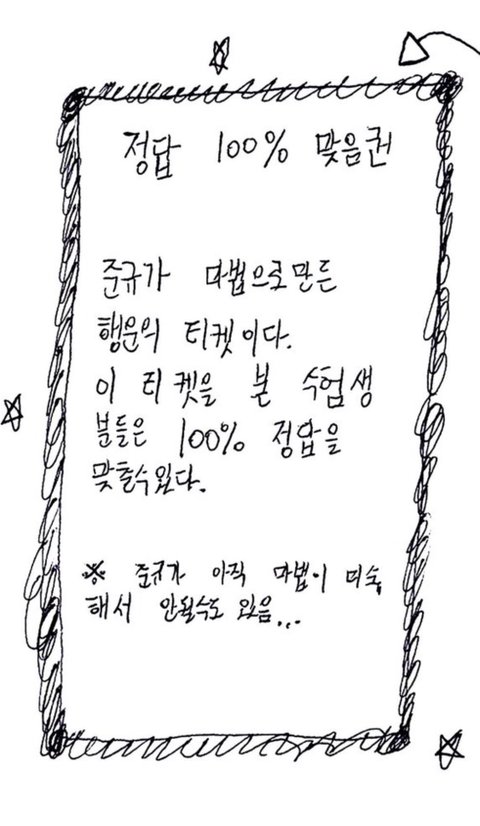 정답 100% 맞음권
준규가 마법으로 만든
행운의 티켓이다.
이 티켓을 본 수험생
분들은 100% 정답을
맞출수있다.
※ 준규가 아직 마법이 미숙
해서 안될수도 있음...